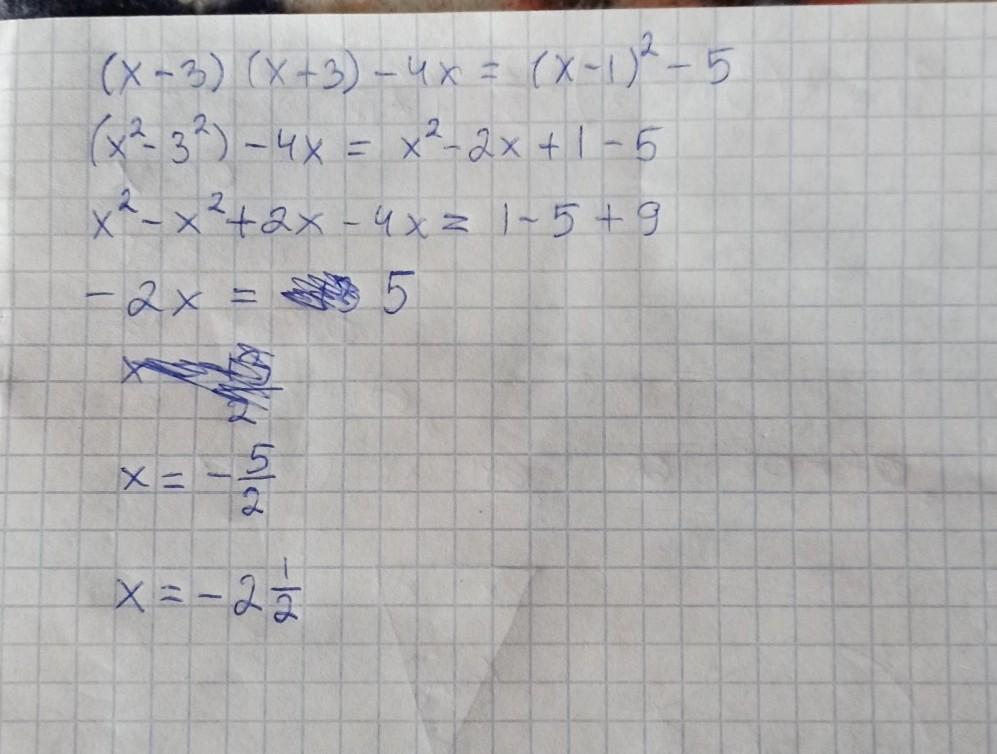 (x-3) (x+3) - 4x = (x-1)² - 5
(x² - 3²) - 4x = x² - 2x + 1 - 5
x² - x² + 2x - 4x = 1 - 5 + 9
- 2x = 5
x = - 5/2
x = - 2 1/2